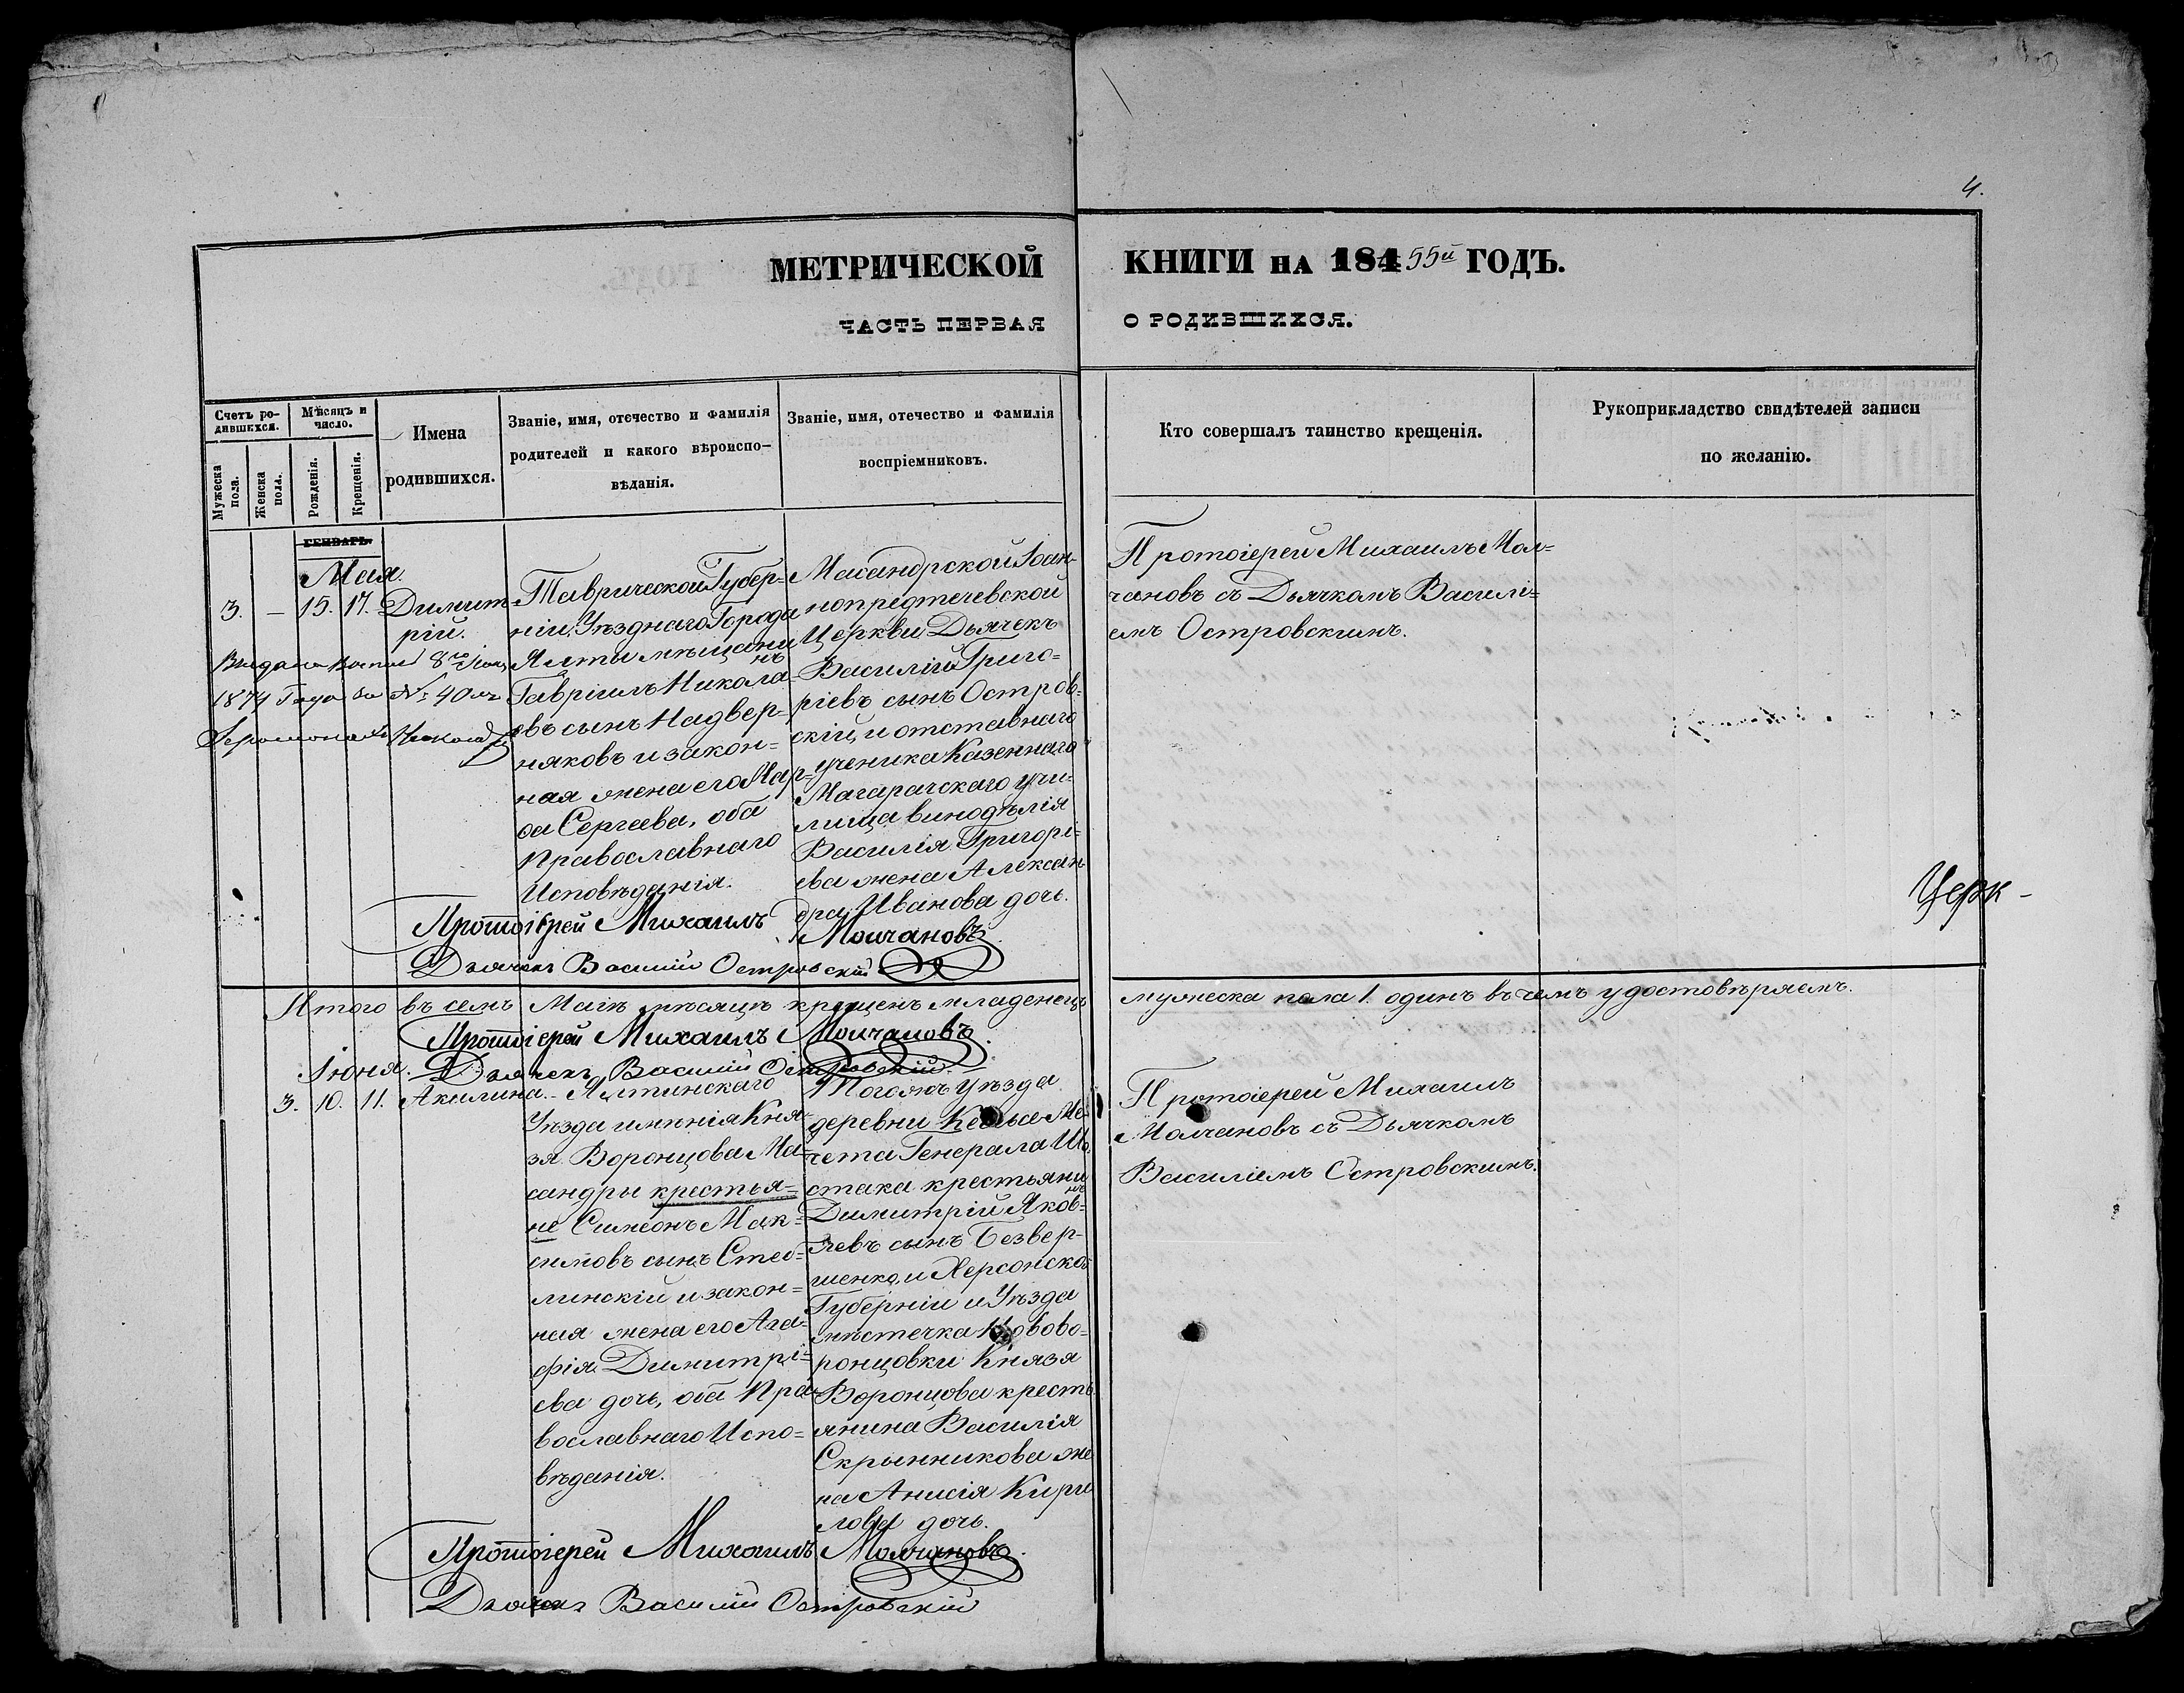 4.
МЕТРИЧЕСКОЙ КНИГИ НА 184 55й ГОДЪ.
ЧАСТЬ ПЕРВАЯ О РОДИВШИХСЯ.
Счетъ ро-
дившихся.
Мѣсяцъ и
число.
Мужеска
пола.
Женска
пола.
Рожденія.
Крещенія.
Имена
родившихся.
Званіе, имя, отечество и фамилія
родителей и какого вѣроиспо-
вѣданія.
Званіе, имя, отечество и фамилія
воспріемниковъ.
Кто совершалъ таинство крещенія.
Рукоприкладство свидѣтелей записи
по желанію.
ГЕНВАРЬ
Мая.
3. – 15. 17. Димит-
рій.
Выдана копія 8го
1874 Года за №: 40мъ
Іеромонахъ
Таврической Губер-
ніи, Уѣзднаго Города
Ялты мѣщани
нъ
Гавріилъ Никола-
евъ сынъ Надвер-
няковъ и закон=
ная жена его Мар-
фа Сергеева, оба
Православнаго
Исповѣданія.
Масандрской Іоан-
нопредтечевской
Церкви Дьячекъ
Василій Григо-
ріевъ сынъ Остров-
скій, и отставнаго
ученика Казеннаго
Магарачскаго учи-
лища винодѣлія
Василія Григорі-
ева жена Алексан
дра Иванова дочь.
Протоіерей Михаилъ Мол=
чановъ съ Дьячкомъ Василі=
емъ Островскимъ.
Церк-
Протоіерей Михаилъ Молчановъ
Дьячекъ Василій Островскій
Итого въ семъ Маіѣ мѣсяцѣ крещенъ младенецъ мужеска пола 1. одинъ въ чемъ удостовѣряемъ.
Протоіерей Михаилъ Молчановъ.
Дьячекъ Василій Островскій.
Іюня.
3. 10. 11. Акилина.
Ялтинскаго
Уѣзда имѣнія Кня-
зя Воронцова Ма-
сандры крестья=
не Симеонъ Мак-
симовъ сынъ
линскій и закон=
ная жена его Ага-
фія Димитрі-
ева дочь, оба Пра-
вославнаго Испо=
вѣданія.
Тогожъ Уѣзда
деревни
чета Генерала
стака крестьяни
нъ
Димитрій Яков-
левъ сынъ Безвер-
шенко, и Херсонской
Губерніи и Уѣзда
мѣстечка Нововo-
ронцовки Князя
Воронцова кресть
янина Василія
Скрынникова же
на Анисія Кири
лова дочь.
Протоіерей Михаилъ
Молчановъ съ Дьячкомъ
Василіемъ Островскимъ.
Протоіерей Михаилъ Молчановъ.
Дьячекъ Василій Островскій